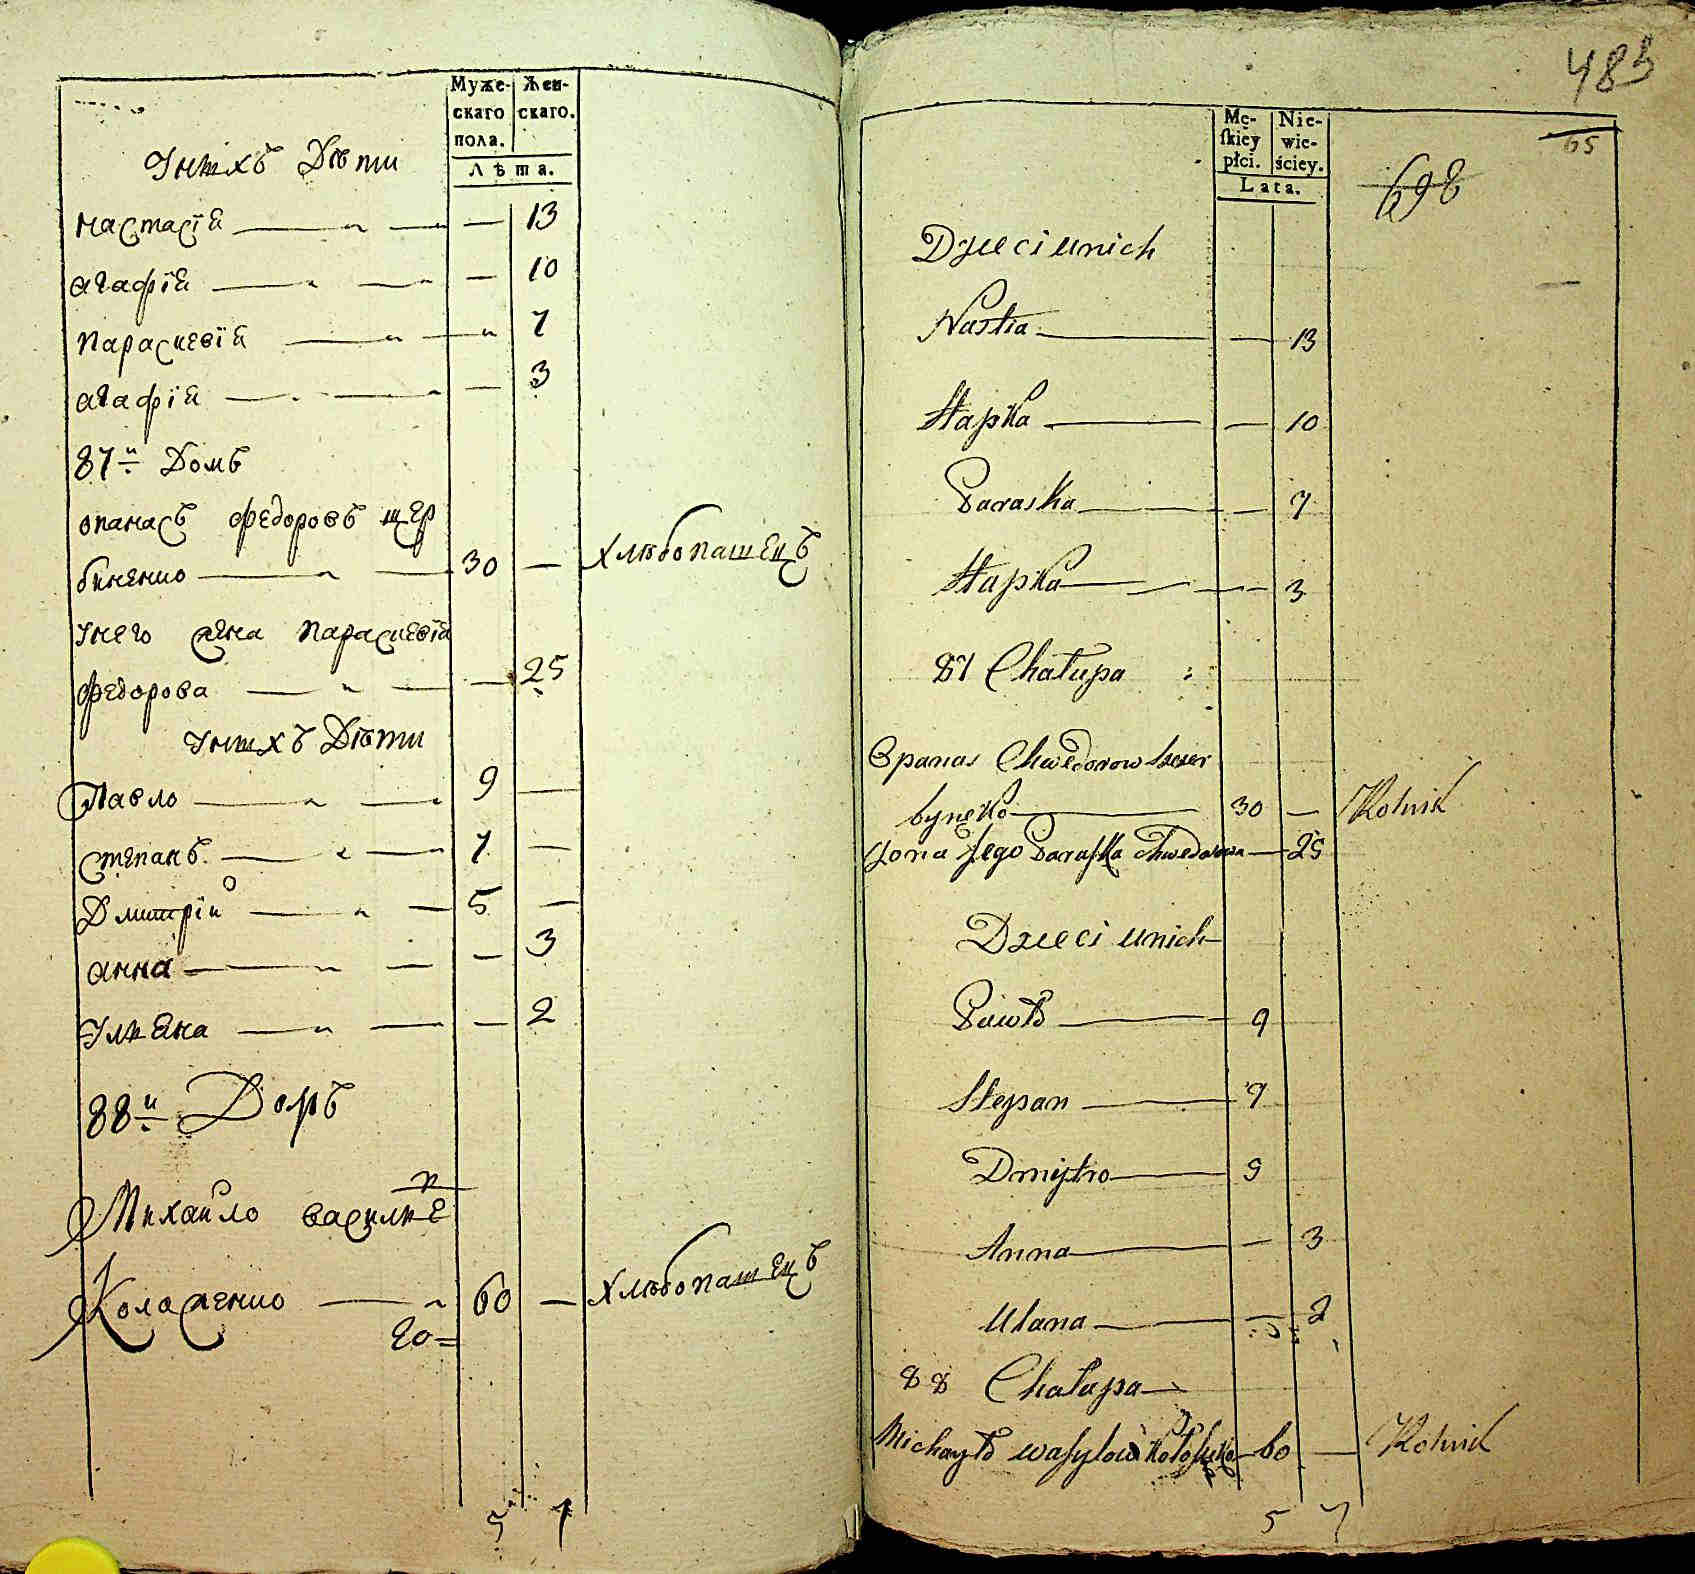 Муже-
скаго
пола.
Жен-
скаго.
Лѣта.
Унихъ Дѣти
настасїя — 13
агафїя — 10
параскевїя 7
агафїя — 3
87й Домъ
опанасъ федоровъ щер
биненко 30 — хлѣбопашецъ
Унего жена параскевїя
федорова — 25
Унихъ Дѣти
Павло 9 —
степанъ 7 —
Дмитрїй 5 —
анна — 3
Улияна — 2
88й Домъ
Михайло василие
Коложенко 60 — хлѣбопашецъ
5 7
483
65
698
Mę-
skiey
płci.
Nie-
wie-
ściey.
Lata.
Dzieci unich
Nastia — 13
Hapka — 10
Paraska — 7
Hapka — 3
87 Chałupa
Opanas Chwedorow Szczer
bynęko 30 — Rolnik
Żona Jego Paraska Chwedorowa — 25
Dzieci unich
Pawło 9
Stepan 7
Dmijtro 5
Anna — 3
Ulana — 2
88 Chałupa
Michayło Wasylow 60 — Rolnik
5 7